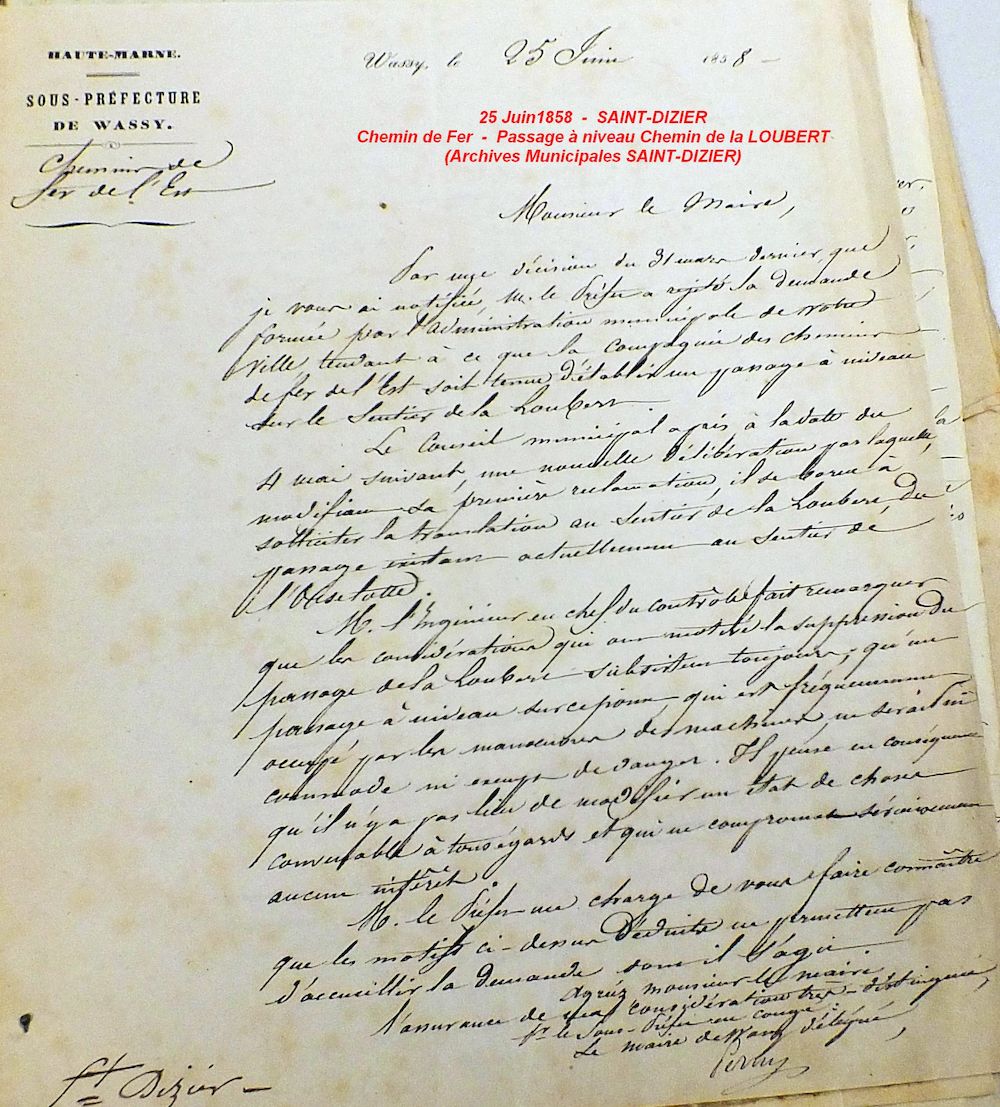 HAUTE-MARNE.
SOUS-PRÉFECTURE
DE WASSY.
Chemins de
Fer de l'Est
Wassy, le 25 Juin 1858 -
25 Juin1858 - SAINT-DIZIER
Chemin de Fer - Passage à niveau Chemin de la LOUBERT
(Archives Municipales SAINT-DIZIER)
Monsieur le Maire,
Par une décision du 31 mars dernier, que
je vous ai notifiée, M. le Préfet a rejeté la demande
formée par l'administration municipale de votre
ville, tendant à ce que la compagnie des chemins
de fer de l'Est soit tenue d'établir un passage à niveau
sur le Sentier de la Loubert.
Le Conseil municipal a pris à la date du
4 mai suivant, une nouvelle délibération par laquelle,
modifiant sa première réclamation, il se borne à
solliciter la translation au Sentier de la Loubert du
passage existant actuellement au Sentier de
M. l'Ingénieur en chef du contrôle fait remarquer
que les considérations qui ont motivé la suppression du
passage de la Loubert subsistent toujours ; qu'un
passage à niveau sur ce point, qui est fréquemment
occupé par les manoeuvres des machines, ne serait ni
commode ni exempt de danger. Il pense en conséquence
qu'il n'y a pas lieu de modifier un état de chose
convenable à tous égards et qui ne compromet sérieusement
aucun intérêt.
M. le Préfet me charge de vous faire connaître
que les motifs ci-dessus déduits ne permettent pas
d'accueillir la demande dont il s'agit.
Agréez monsieur le maire,
l'assurance de ma considération très-distinguée,
Pr le Sous-Préfet en congé :
Le maire de Wassy délégué,
St Dizier -